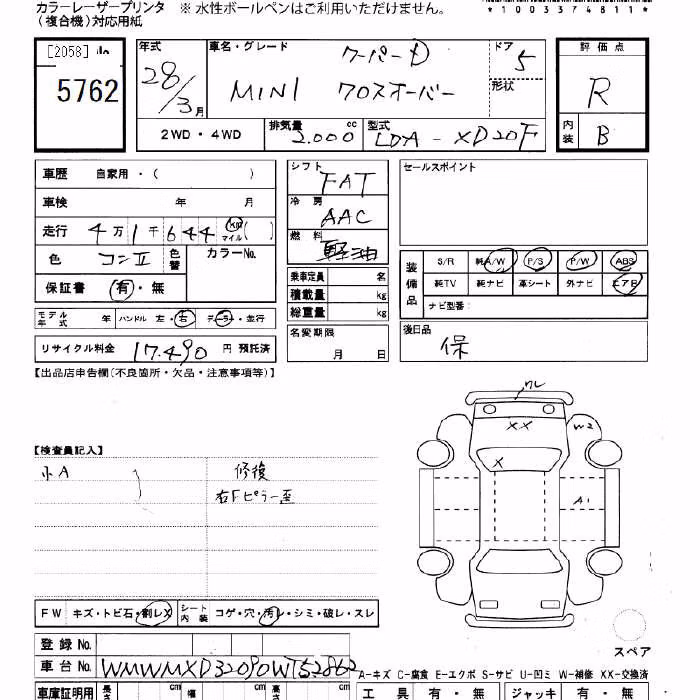 カラーレーザープリンタ ※ 水性ボールペンはご利用いただけません。
(複合機)対応用紙 *1003374811*
[2058]
5762
年式 28/3月
車名・グレード クーパーD
MINI クロスオーバー
ドア 5
形状
評価点 R
内装 B
2WD・4WD 排気量 2.000 cc 型式 LDA-XD20F
車歴 自家用・( )
車検 年 月
走行 4万1千644 km マイル ( )
色 コン II 色替 カラーNo.
保証書 有・無
モデル年式 年 ハンドル 左・右 ディーラー・並行
リサイクル料金 17.490 円 預託済
シフト FAT
冷房 AAC
燃料 軽油
乗車定員 名
積載量 kg
総重量 kg
名変期限 月 日
セールスポイント
装備品 S/R 純A/W P/S P/W ABS
純TV 純ナビ 革シート 外ナビ エアB
ナビ型番:
後日品 保
【出品店申告欄(不良箇所・欠品・注意事項等)】
【検査員記入】
小A 修復
右Fピラー歪
ワレ
XX
W2
X
A1
スペア
FW キズ・トビ石・割レX シート内装 コゲ・穴・汚レ・シミ・破レ・スレ
登録No.
車台No. WMWMXD32090WT52862
A-キズ C-腐食 E-エクボ S-サビ U-凹ミ W-補修 XX-交換済
車庫証明用 長さ cm 幅 cm 高さ cm 工具 有・無 ジャッキ 有・無